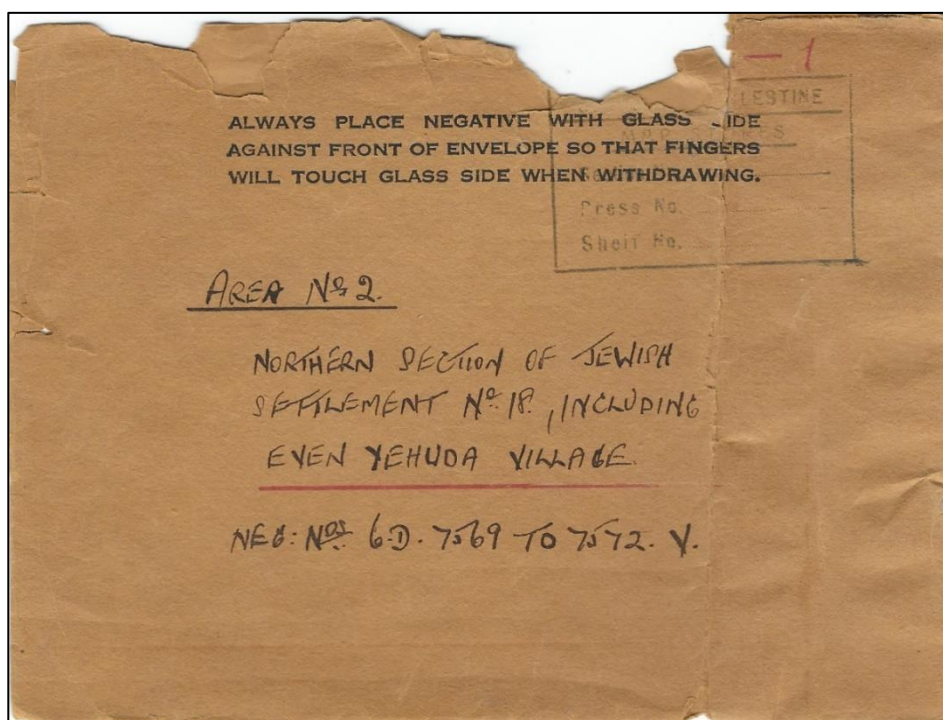 — 1
LESTINE
MAP STORES
ALWAYS PLACE NEGATIVE WITH GLASS SIDE
AGAINST FRONT OF ENVELOPE SO THAT FINGERS
WILL TOUCH GLASS SIDE WHEN WITHDRAWING.
Press No.
Shelf No.
AREA Nº 2.
NORTHERN SECTION OF JEWISH
SETTLEMENT Nº 18, INCLUDING
EVEN YEHUDA VILLAGE.
NEG: NOS 6.D. 7569 TO 7572. V.